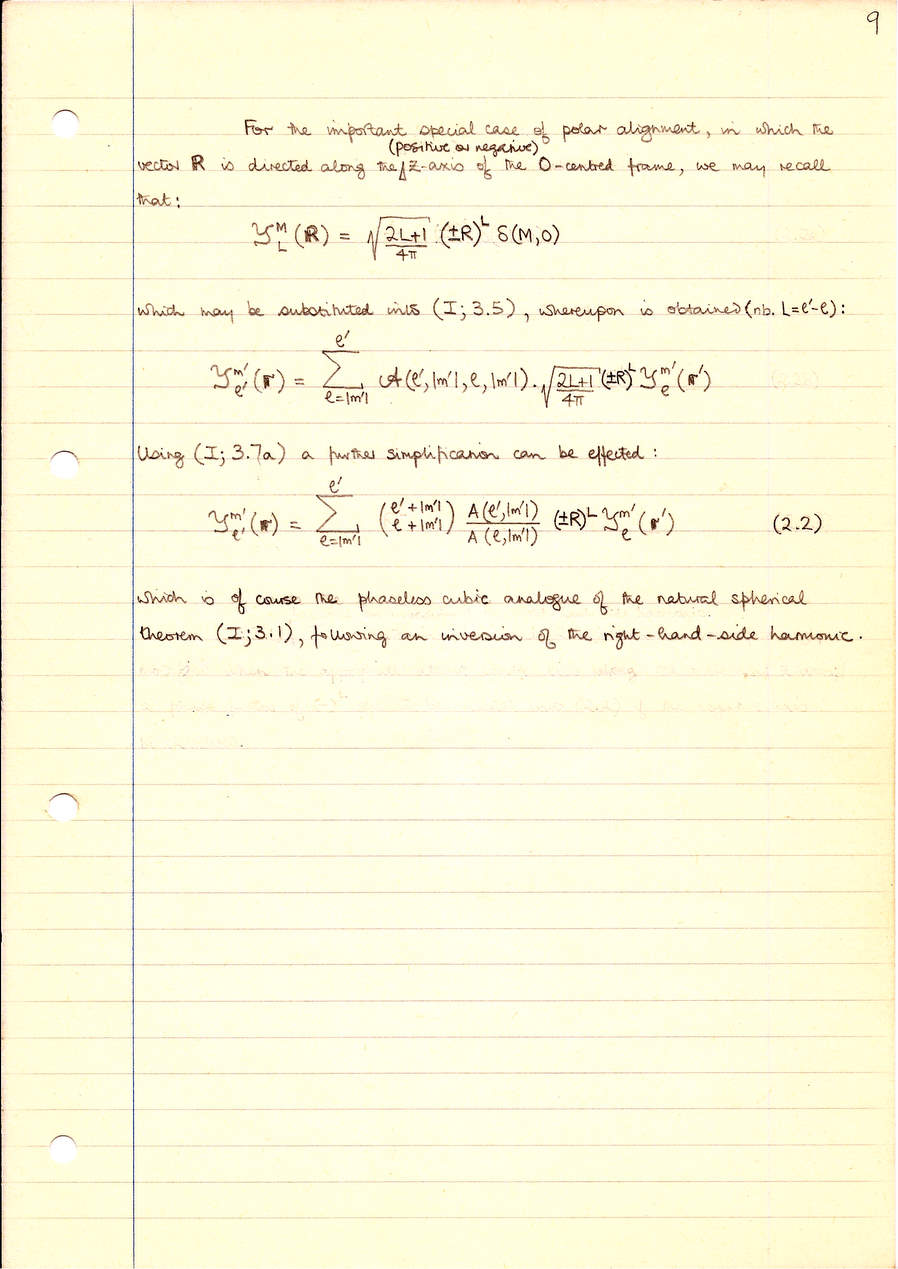 9
For the important special case of polar alignment, in which the
(positive or negative)
vector ℝ is directed along the Z-axis of the O-centred frame, we may recall
that:
𝒴_L^M(ℝ) = √(2L+1)/4π . (±R)^L δ(M,0)
which may be substituted into (I; 3.5), whereupon is obtained (nb. L=ℓ'-ℓ):
𝒴_ℓ'^m'(𝕣) = ∑_{ℓ=|m'|}^{ℓ'} 𝒜(ℓ',|m'|,ℓ,|m'|) . √(2L+1)/4π (±R)^L 𝒴_ℓ^m'(𝕣')
Using (I; 3.7a) a further simplification can be effected:
𝒴_ℓ'^m'(𝕣) = ∑_{ℓ=|m'|}^{ℓ'} (ℓ'+|m'| ℓ+|m'|) A(ℓ',|m'|)/A(ℓ,|m'|) (±R)^L 𝒴_ℓ^m'(𝕣') (2.2)
which is of course the phaseless cubic analogue of the natural spherical
theorem (I; 3.1), following an inversion of the right-hand-side harmonic.